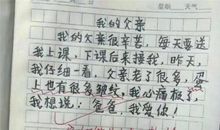 星期 天气
我的父亲
我的父亲很辛苦,每天要送
我上课,下课后来接我,昨天,
我仔细一看,父亲老了很多,
上也有很多皱纹,我心痛极了,
我想说:爸爸,我爱你!